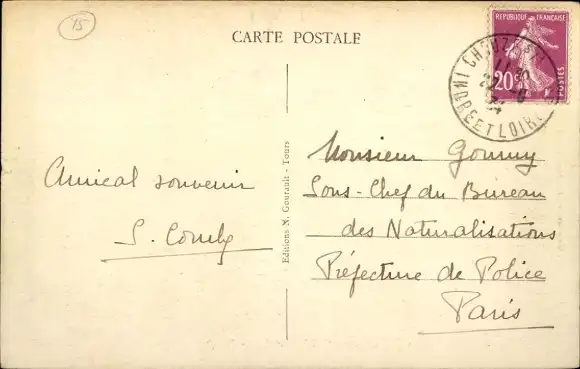 15
CARTE POSTALE
REPUBLIQUE FRANÇAISE
20c
POSTES
CHOUZ
INDRE ET LOIRE
Amical souvenir
Editions N. Gourault - Tours
Monsieur
Sous-Chef du Bureau
des Naturalisations
Préfecture de Police
Paris